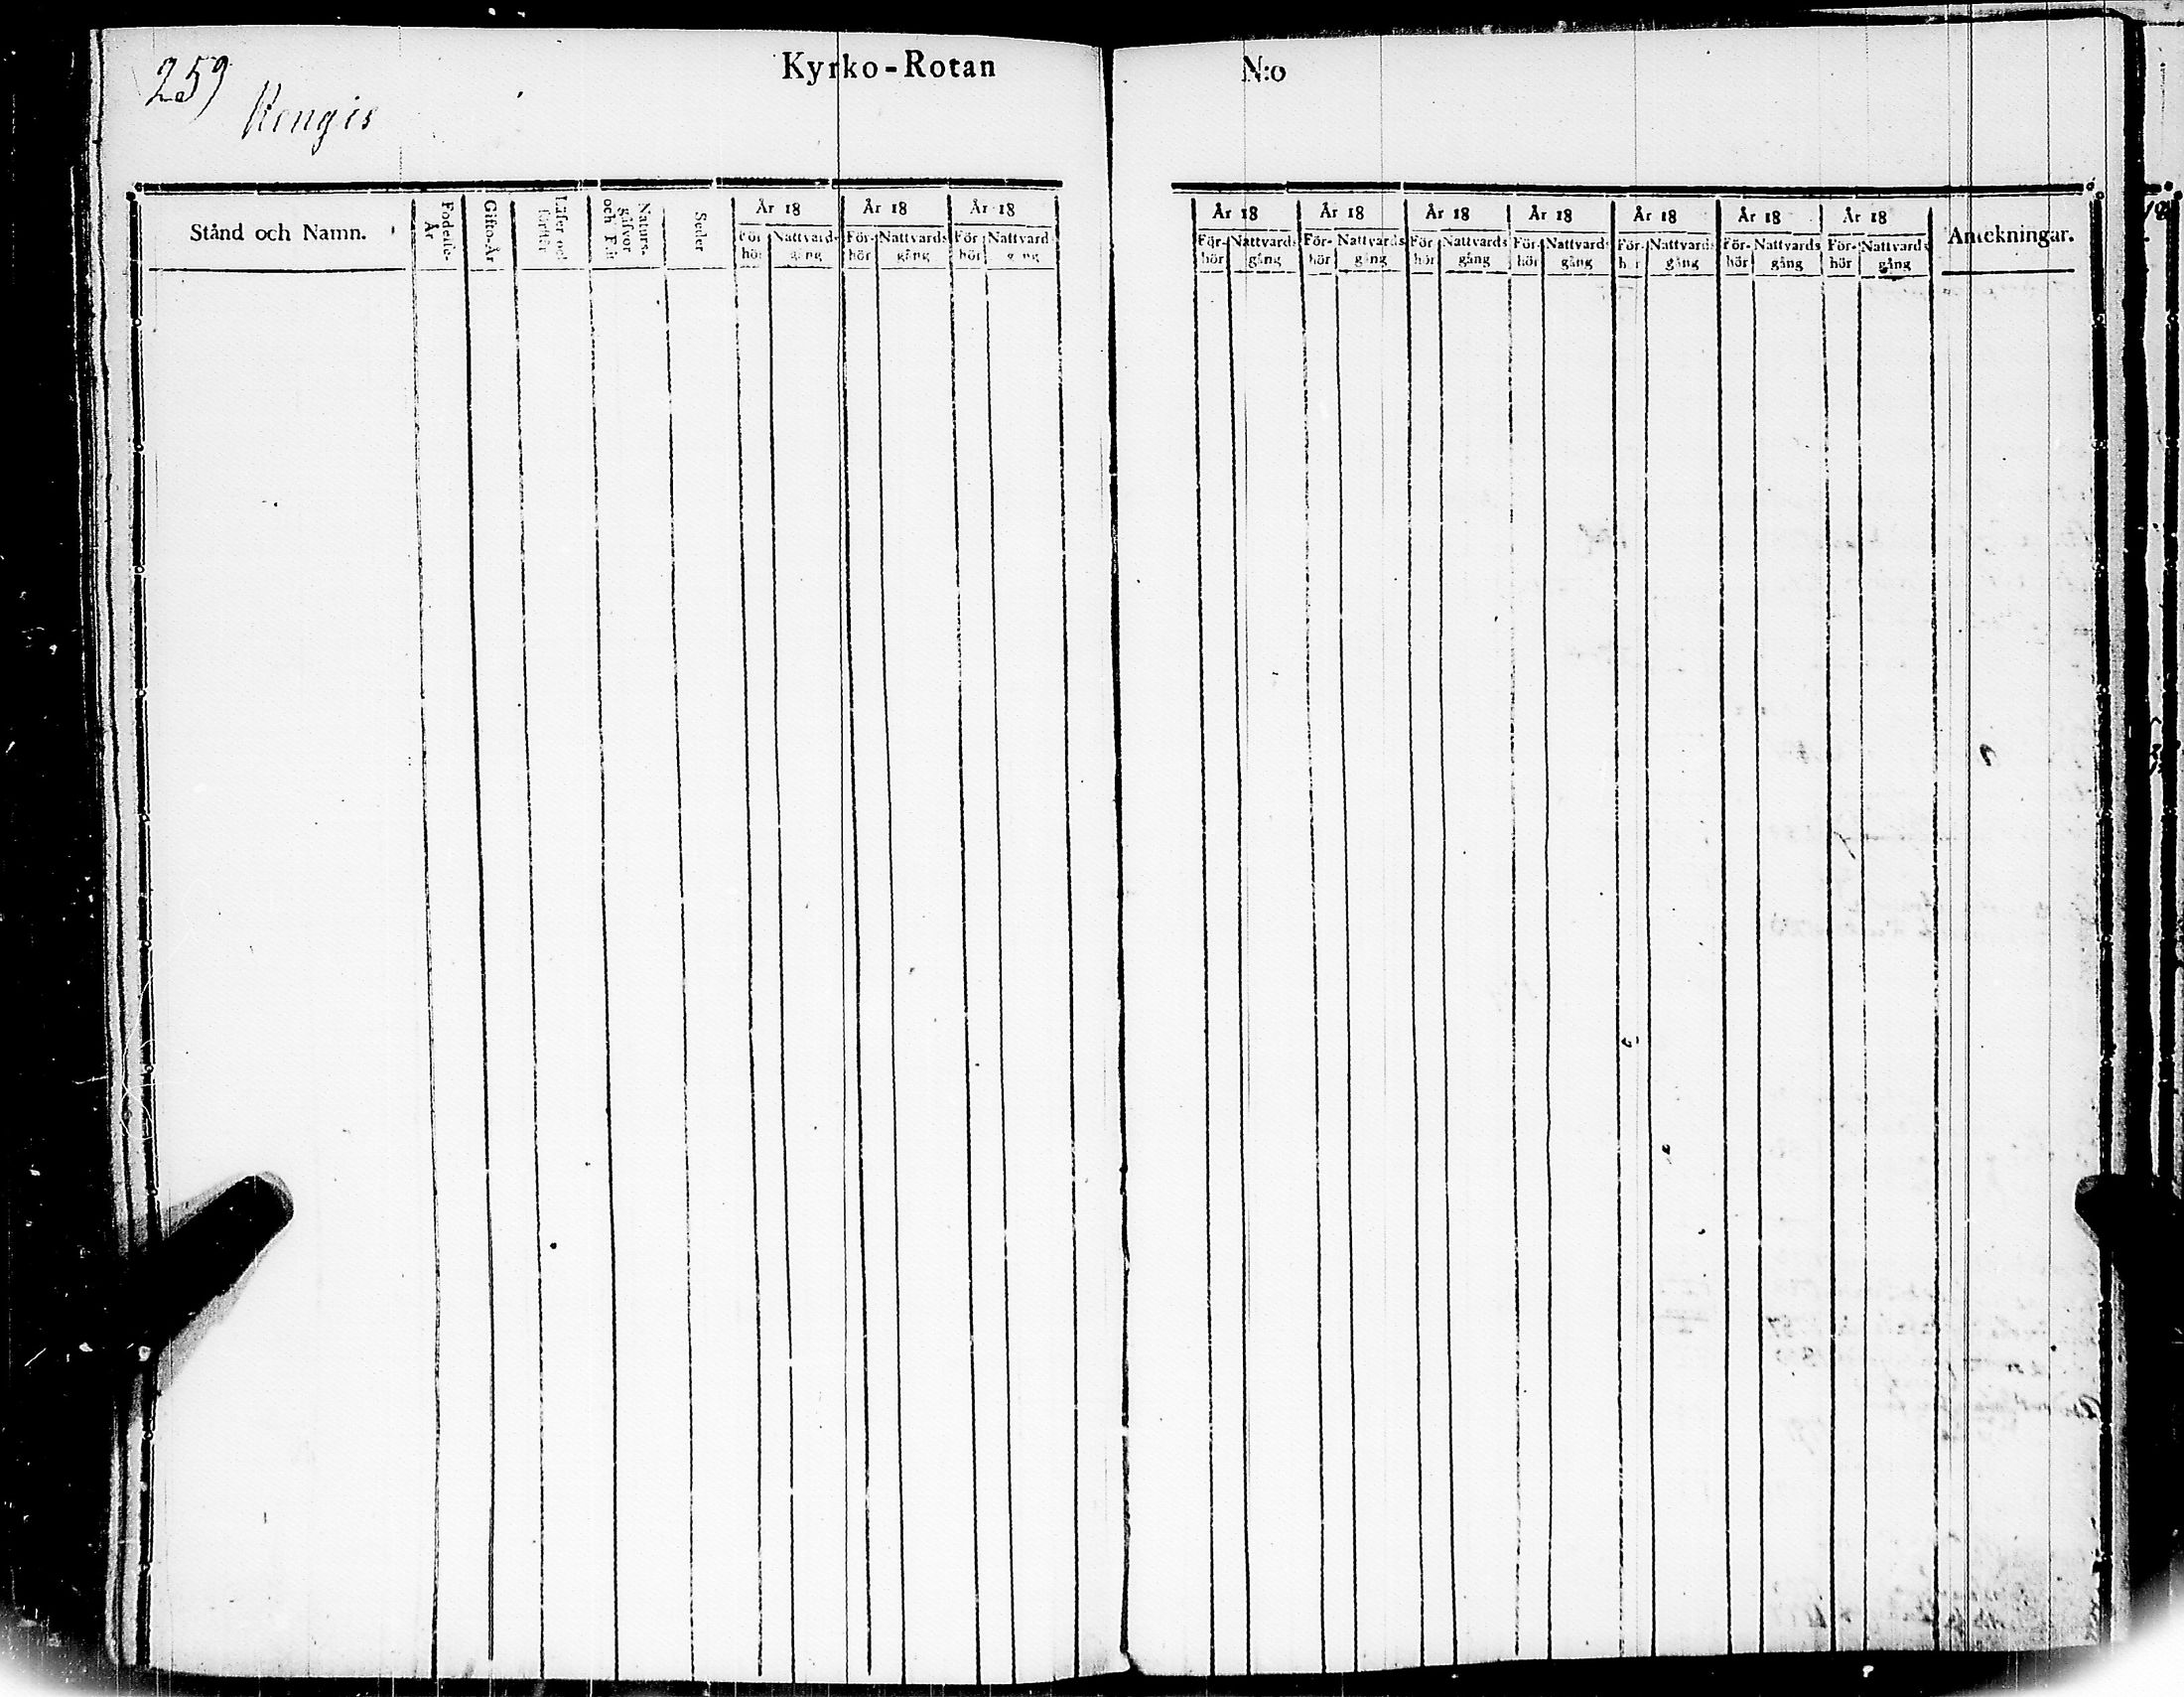 259
Kengis
Kyrko-Rotan N:o
Stånd och Namn.
Födelse-År
Gifto-År
Läser och
Naturs-gåfvor och
Seder
År 18 År 18 År 18
För-hör Nattvards gång För-hör Nattvards gång För hör Nattvard gång
År 18 År 18 År 18 År 18 År 18 År 18 År 18
För-hör Nattvards gång För-hör Nattvards gång För hör Nattvards gång För-hör Nattvards gång För-hör Nattvards gång För-hör Nattvards gång För-hör Nattvards gång
Anteckningar.